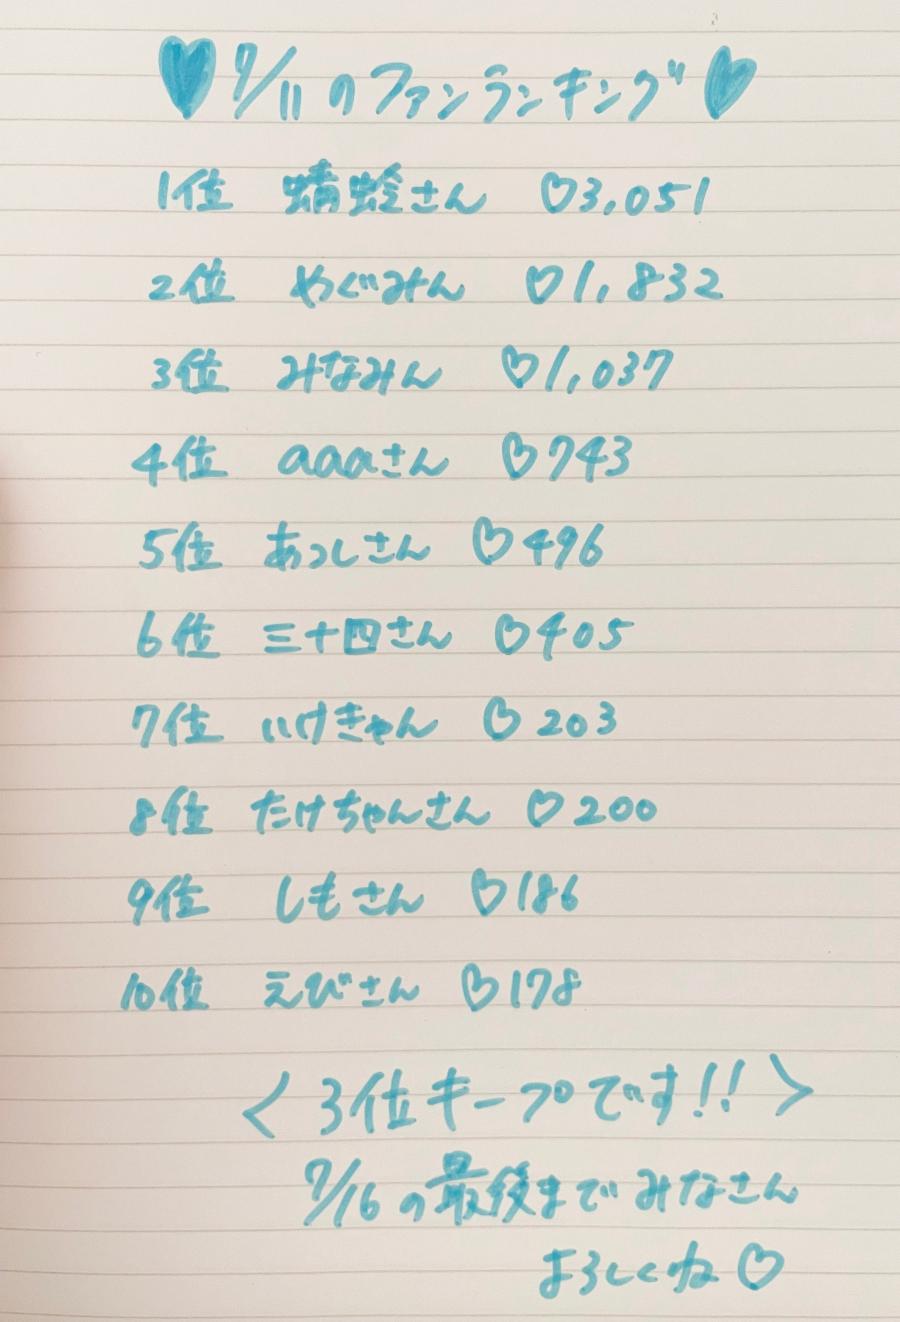 ♥7/11のファンランキング♥
1位 蜻蛉さん ♡3,051
2位 めぐみん ♡1,832
3位 みなみん ♡1,037
4位 aaaさん ♡743
5位 あつしさん ♡496
6位 三十四さん ♡405
7位 いけきゃん ♡203
8位 たけちゃんさん ♡200
9位 しもさん ♡186
10位 えびさん ♡178
<3位キープです!!>
7/16の最後までみなさん
よろしくね♡